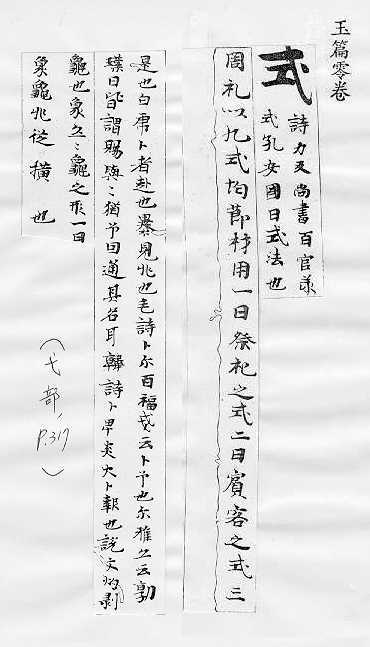 玉篇零卷
式 詩力反尚書百官羕
式孔安國曰式法也
周礼以九式均莭材用一曰祭祀之式二曰賓客之式三
是也白虎卜者赴也㬥見兆也毛詩卜尓百福戔云卜予也尓雅亦云
璞曰皆謂賜與々猶予曰通其名耳韓詩卜畀炎大卜報也說文灼剥
龜也象久々龜之形一曰
象龜兆従横也
(弋部, P.317)